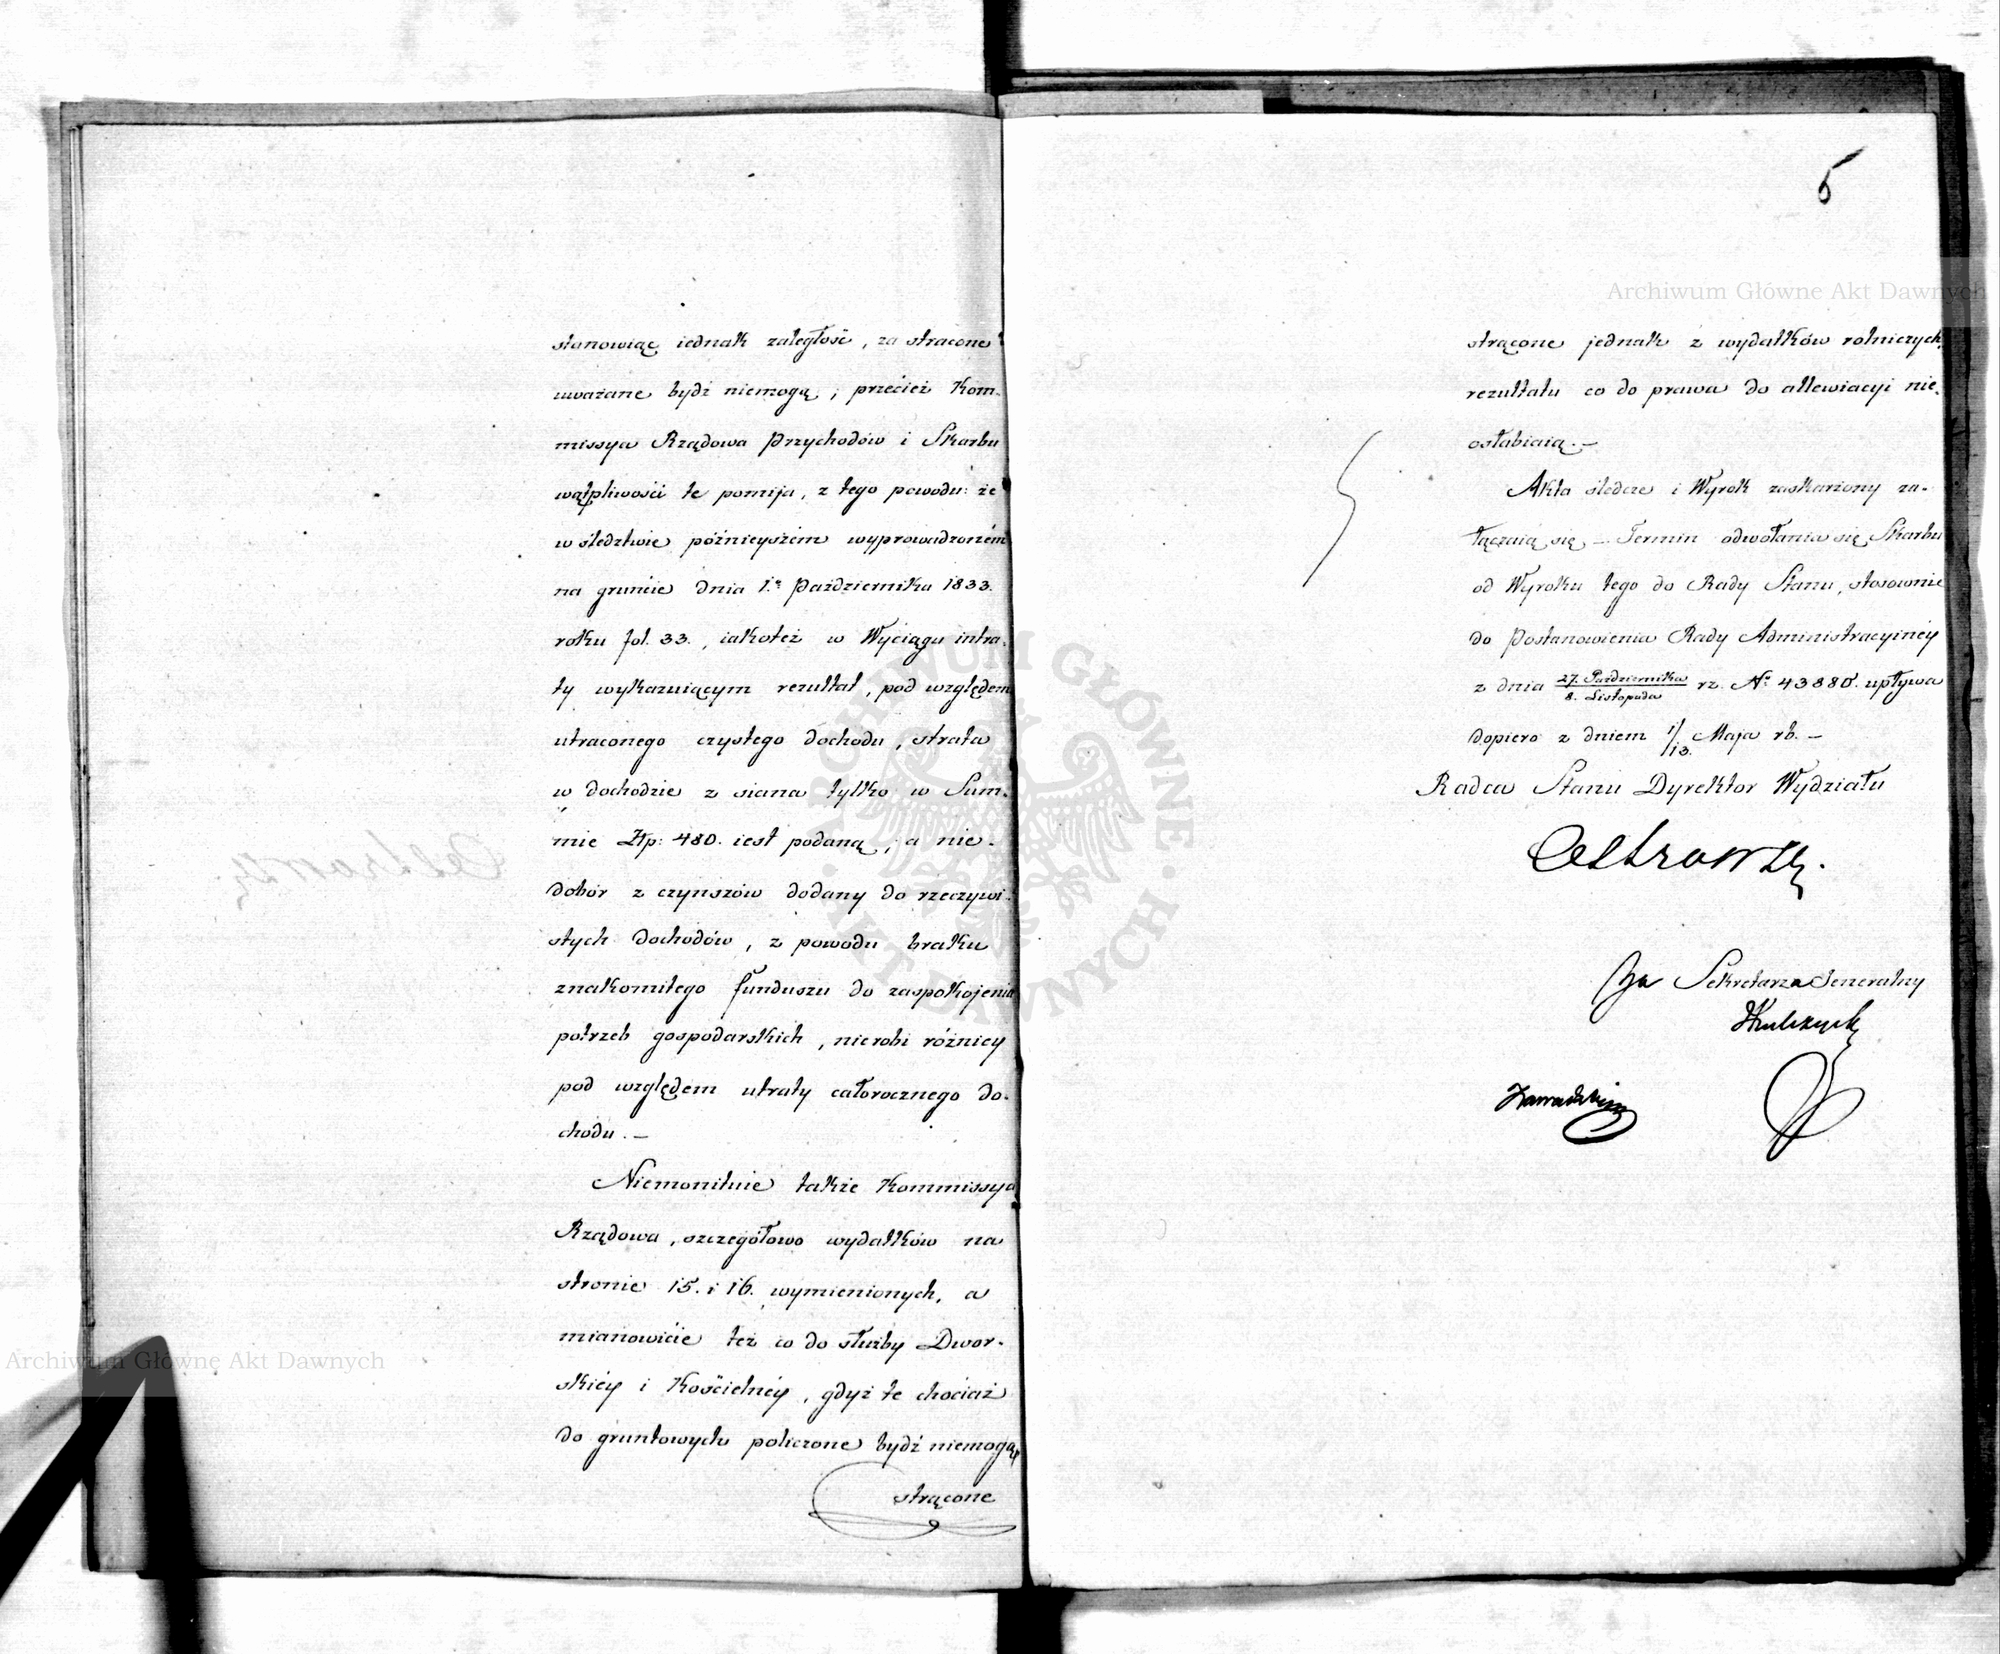 stanowiąc iednak zaległość, za stracone
uważane bydź niemogą, przecież Kom-
missya Rządowa Przychodów i Skarbu
wątpliwości te pomija, z tego powodu: że
w śledztwie późnieyszém wyprowadzoném
na gruncie dnia 1.º Października 1833.
roku fol. 33., iakoteż w Wyciągu intra-
ty wykazuiącym rezultat, pod względem
utraconego czystego dochodu, strata
w dochodzie z siana tylko w Sum-
mie Złp: 480. iest podaną, a nie-
dobór z czynszów dodany do rzeczywi-
stych dochodów, z powodu braku
znakomitego funduszu do zaspokojenia
potrzeb gospodarskich, nierobi różnicy
pod względem utraty całorocznego do-
chodu. —
Niemonituie także Kommissya
Rządowa, szczegółowo wydatków na
stronie 15. i 16. wymienionych, a
mianowicie też co do służby Dwor-
skiéy i Kościelnéy, gdyż te chociaż
do gruntowych policzone bydź niemogą
strącone
5
strącone jednak z wydatków rolniczych,
rezultatu co do prawa do allewiacyi nie-
osłabiaią. —
Akta śledcze i Wyrok zaskarżony za-
łączaią się — Termin odwołania się Skarbu
od Wyroku tego do Rady Stanu, stosownie
do Postanowienia Rady Administracyinéy
z dnia 27. Października / 8. Listopada rz. Nº 43880. upływa
dopiero z dniem 1/13. Maja rb. —
Radca Stanu Dyrektor Wydziału
Za Sekretarza Jeneralny
Archiwum Główne Akt Dawnych
Archiwum Główne Akt Dawnych
ARCHIWUM GŁÓWNE AKT DAWNYCH